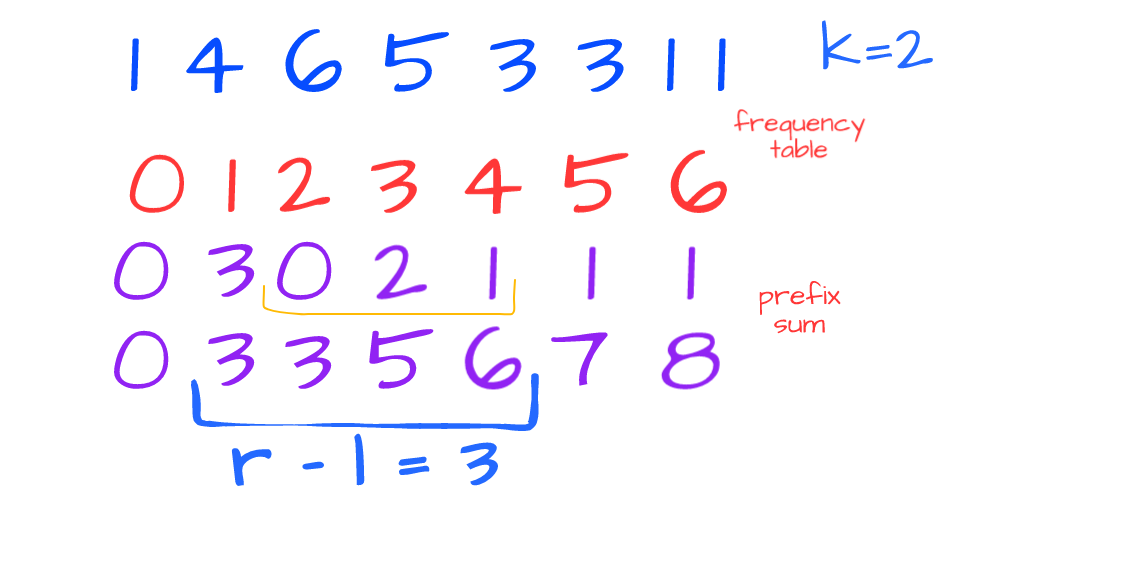 1 4 6 5 3 3 1 1
k=2
frequency
table
0 1 2 3 4 5 6
0 3 0 2 1 1 1
prefix
sum
0 3 3 5 6 7 8
r - l = 3